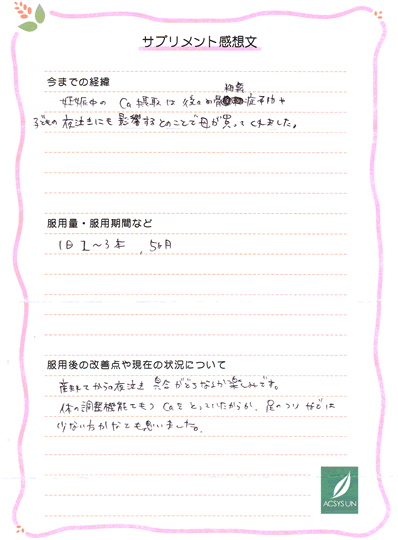 サプリメント感想文
今までの経緯
妊娠中の Ca摂取は後々の骨粗鬆症予防や
子どもの夜泣きにも影響するとのことで母が買ってくれました。
服用量・服用期間など
1日2〜3本、5ヶ月
服用後の改善点や現在の状況について
産まれてからの夜泣き具合がどうなるか楽しみです。
体の調整機能でもつCaをとっていたからか、足のつりなどは
少ない方かなとも思いました。
ACSYSUN